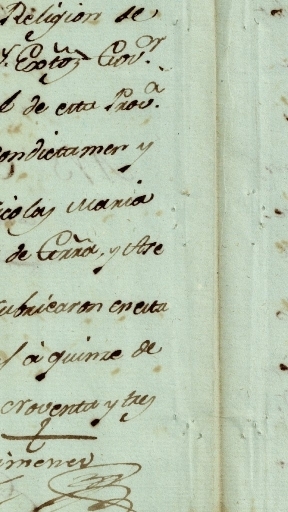 Religion de
y Exto. Gov.r
l de esta Prov.a
con dictamen y
icolas Maria
de Grra. y Ase
rubricaron en esta
s à quinze de
noventa y tres
imenes